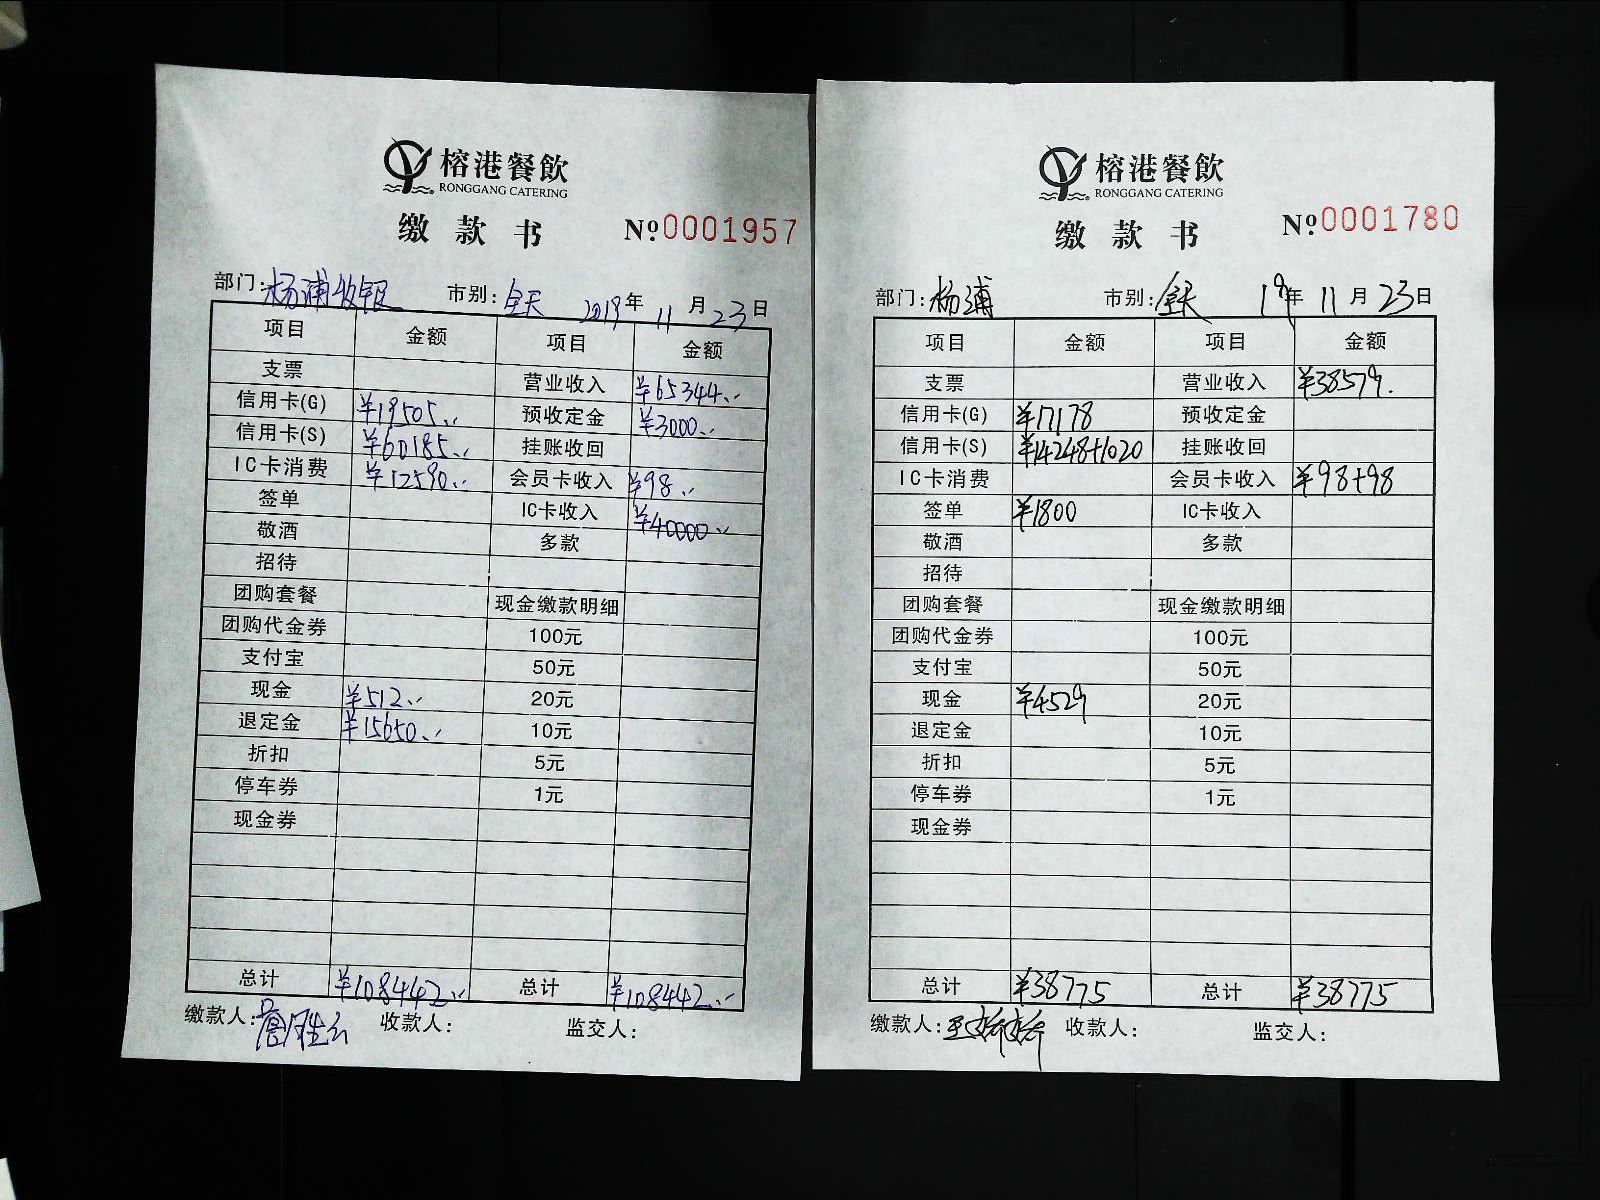 榕港餐飲
RONGGANG CATERING
缴款书 №0001957
部门:杨浦收银 市别:全天 2019年11月23日
项目 金额 项目 金额
支票 营业收入 ¥65344.
信用卡(G) ¥19505. 预收定金 ¥3000.
信用卡(S) ¥60185. 挂账收回
IC卡消费 ¥12590. 会员卡收入 ¥98.
签单 IC卡收入 ¥40000.
敬酒 多款
招待
团购套餐 现金缴款明细
团购代金券 100元
支付宝 50元
现金 ¥512. 20元
退定金 ¥15650. 10元
折扣 5元
停车券 1元
现金券
总计 ¥108442. 总计 ¥108442.
缴款人: 收款人: 监交人:
榕港餐飲
RONGGANG CATERING
缴款书 №0001780
部门:杨浦 市别:全天 19年11月23日
项目 金额 项目 金额
支票 营业收入 ¥38579.
信用卡(G) ¥17178 预收定金
信用卡(S) ¥14248+1020 挂账收回
IC卡消费 会员卡收入 ¥98+98
签单 ¥1800 IC卡收入
敬酒 多款
招待
团购套餐 现金缴款明细
团购代金券 100元
支付宝 50元
现金 ¥4529 20元
退定金 10元
折扣 5元
停车券 1元
现金券
总计 ¥38775 总计 ¥38775
缴款人: 收款人: 监交人: